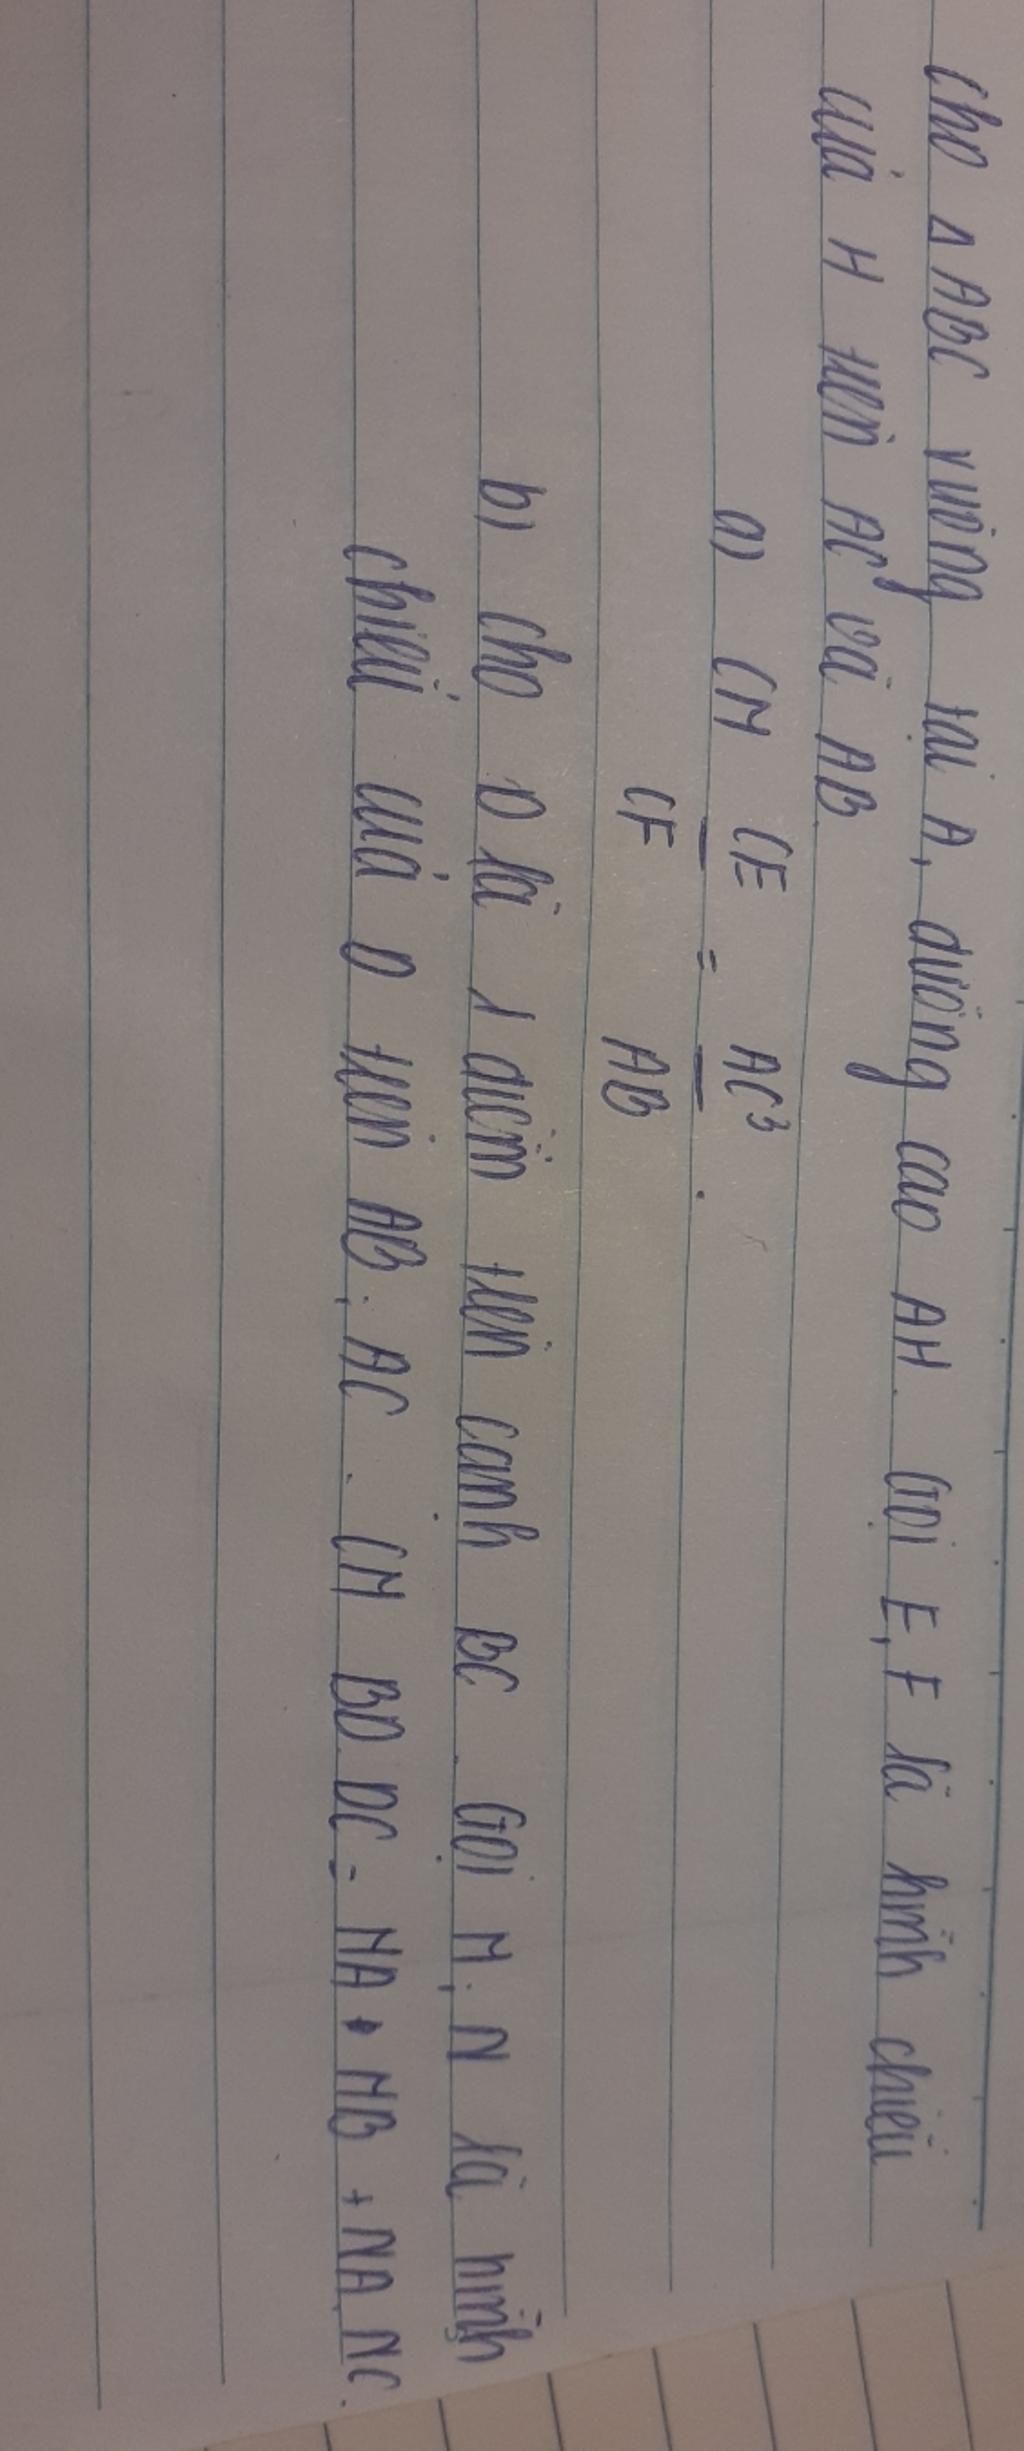 Cho Δ ABC vuông tại A, đường cao AH. Gọi E, F là hình chiếu
của H trên AC và AB.
a) CM CE/CF = AC³/AB.
b) Cho D là 1 điểm trên cạnh BC. Gọi M, N là hình
chiếu của D trên AB, AC. CM BD.DC = MA.MB + NA.NC.